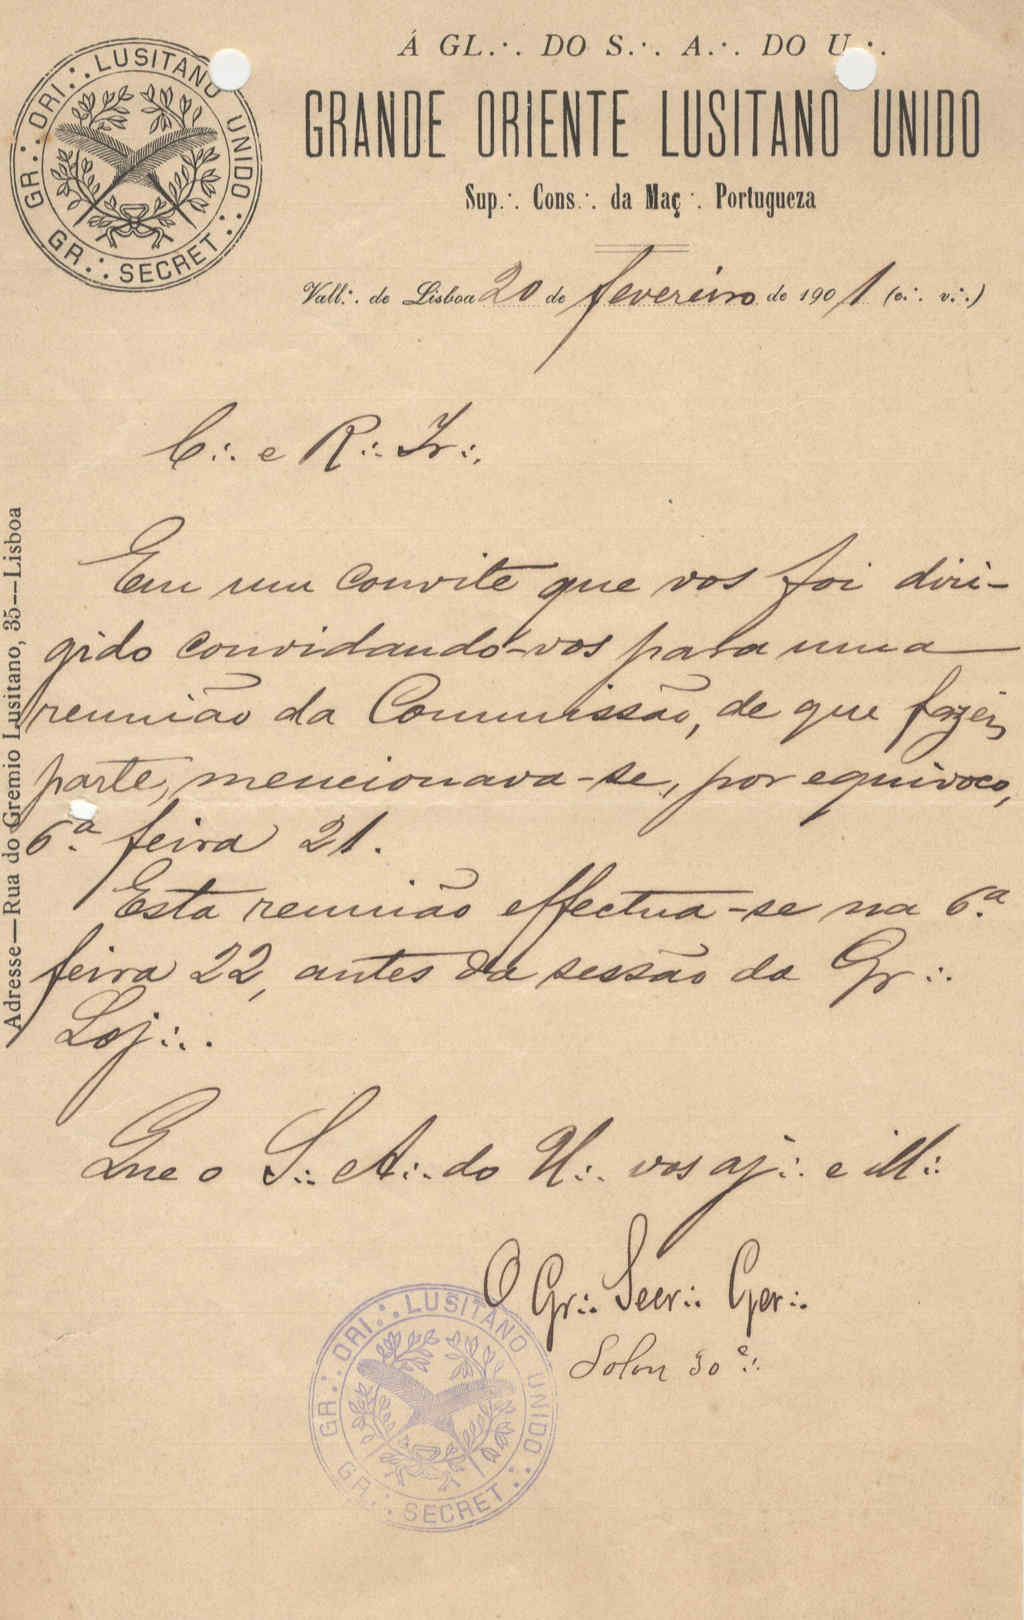 Á GL.·. DO S.·. A.·. DO U.·.
GR.·. ORI.·. LUSITANO UNIDO.·.
GR.·. SECRET.·.
GRANDE ORIENTE LUSITANO UNIDO
Sup.·. Cons.·. da Maç.·. Portugueza
Vall.·. de Lisboa 20 de fevereiro de 1901 (e.·. v.·.)
C.·. e R.·. Ir.·.
Em um convite que vos foi diri-
gido convidando-vos para uma
reunião da Commissão, de que fazeis
parte, mencionava-se, por equivoco,
6.ª feira 21.
Esta reunião effectua-se na 6.ª
feira 22, antes da sessão da Gr.·.
Loj.·..
Que o S.·. A.·. do U.·. vos aj.·. e ill.·.
O Gr.·. Secr.·. Ger.·.
Solon 30 e.·.
GR.·. ORI.·. LUSITANO UNIDO.·.
GR.·. SECRET.·.
Adresse—Rua do Gremio Lusitano, 35—Lisboa